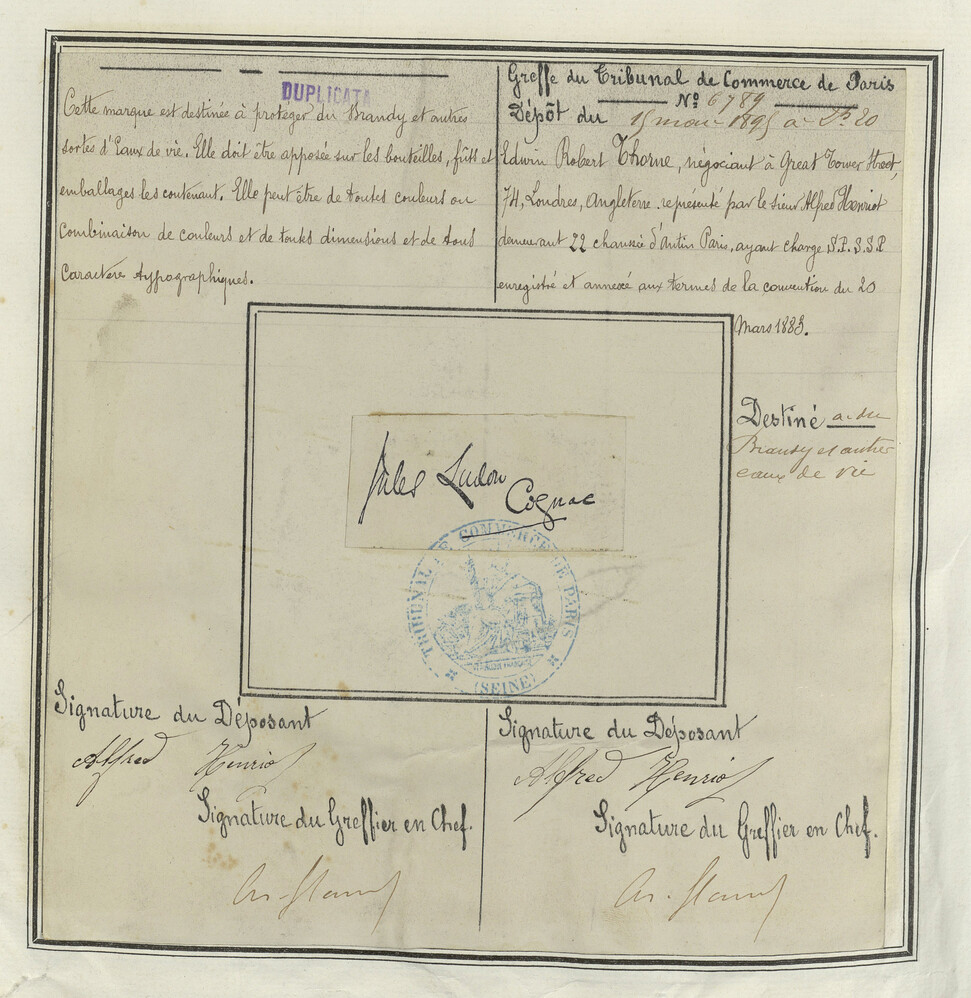 DUPLICATA
Cette marque est destinée à protéger du Brandy et autres
sortes d'Eaux de vie. Elle doit être apposée sur les bouteilles, fûts et
emballages les contenant. Elle peut être de toutes couleurs ou
combinaison de couleurs et de toutes dimensions et de tous
caractère typographiques.
Greffe du Tribunal de Commerce de Paris
No 6789
Dépôt du 15 mai 1895 à 20
Edwin Robert Thorne, négociant à Great Tower Street,
74, Londres, Angleterre, représenté par le sieur Alfred Henriot
demeurant 22 chaussée d'Antin Paris, ayant charge S.P.S.S.P
enregistré et annexée aux termes de la convention du 20
Mars 1883.
Destiné à du
Brandy et autres
eaux de vie
Jules Ludon
Cognac
TRIBUNAL DE COMMERCE DE PARIS
(SEINE)
Signature du Déposant
Alfred Henriot
Signature du Greffier en Chef.
Signature du Déposant
Alfred Henriot
Signature du Greffier en Chef.